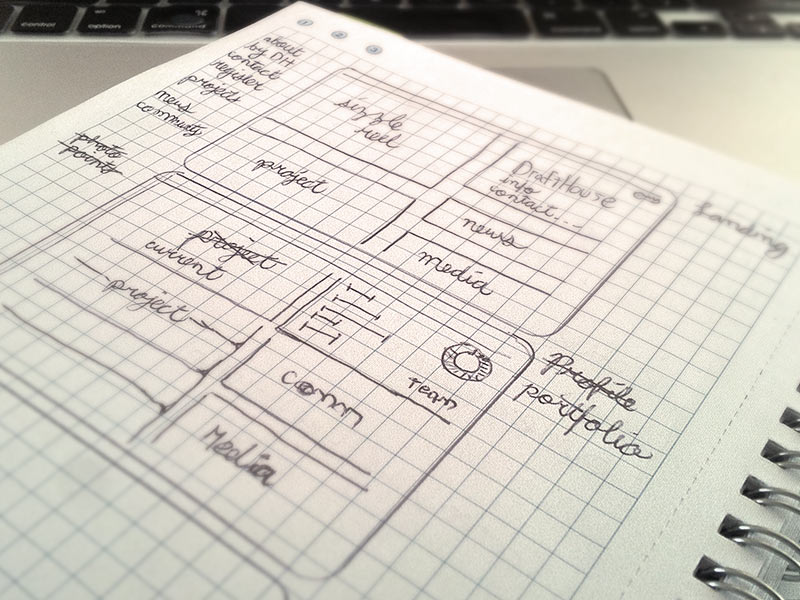 control
option
command
1 2 3
about
by DH
contact
register
projects
news
community
photo
points
sizzle
reel
project
DraftHouse
info
contact...
news
media
Landing
project
current
project
team
comm
Media
profile
portfolio